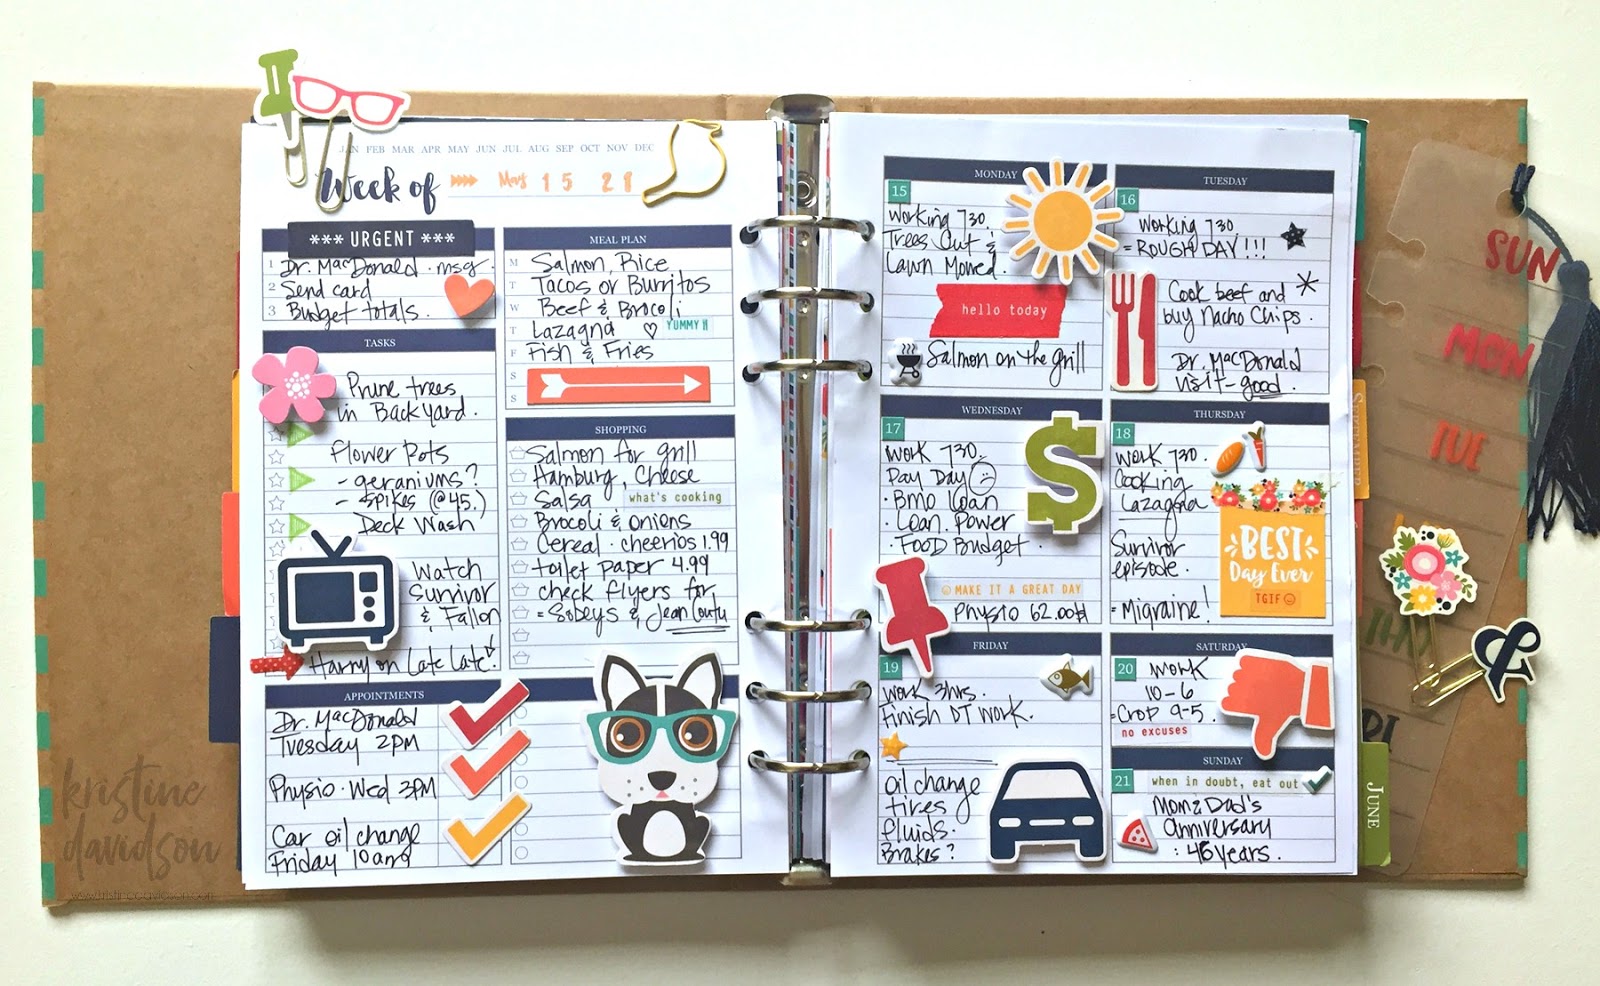 JAN FEB MAR APR MAY JUN JUL AUG SEP OCT NOV DEC
Week of May 15 21
*** URGENT ***
1 Dr. MacDonald . msg.
2 Send card
3 Budget totals.
TASKS
Prune trees
in Backyard.
Flower Pots
- geraniums?
- spikes (@45.)
Deck Wash
Watch
Survivor
& Fallon
Harry on Late Late.
APPOINTMENTS
Dr. MacDonald
Tuesday 2PM
Physio . Wed 3PM
Car oil change
Friday 10am
MEAL PLAN
M Salmon, Rice
T Tacos or Burritos
W Beef & Brocoli
T Lazagna ♡ YUMMY!!
F Fish & Fries
S
S
SHOPPING
Salmon for grill
Hamburg, Cheese
Salsa what's cooking
Brocoli & onions
Cereal . cheerios 1.99
toilet paper 4.99
check flyers for
= Sobeys & Jean Coutu
MONDAY
15
Working 730.
Trees Cut &
Lawn Mowed.
hello today
Salmon on the grill
TUESDAY
16
Working 730.
= ROUGH DAY!!!
Cook beef and
buy Nacho Chips.
Dr. MacDonald
visit - good.
WEDNESDAY
17
Work 730.
Pay Day
. Bmo Loan
. Loan. Power
. Food Budget.
MAKE IT A GREAT DAY
Physio 62.00
THURSDAY
18
Work 730.
Cooking
Lazagna
Survivor
episode.
= Migraine!
BEST
Day Ever
TGIF
FRIDAY
19
Work 3hrs.
finish DT work.
oil change
tires
fluids.
Brakes?
SATURDAY
20
Work
10-6
= Crop 9-5.
no excuses
SUNDAY
21
when in doubt, eat out
Mom & Dad's
anniversary
: 45 years.
SUN
MON
TUE
SEPTEMBER
JUNE
&
kristine
davidson